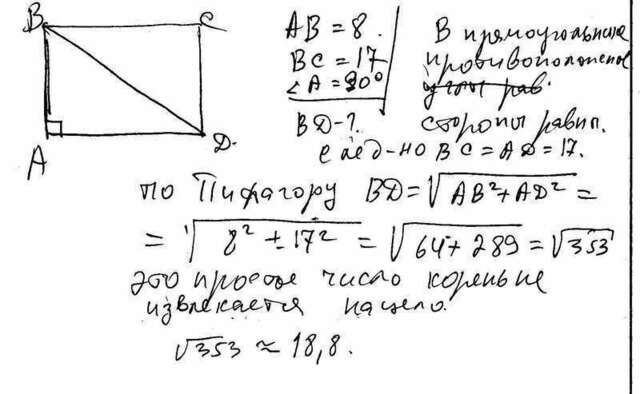 B C
A D
AB = 8.
BC = 17
∠A = 90°
BD - ?
В прямоугольнике
противоположные
углы рав.
стороны равн.
след-но BC = AD = 17.
по Пифагору BD = √AB² + AD² =
= √8² + 17² = √64 + 289 = √353
это простое число корень не
извлекается нацело.
√353 ≈ 18,8.